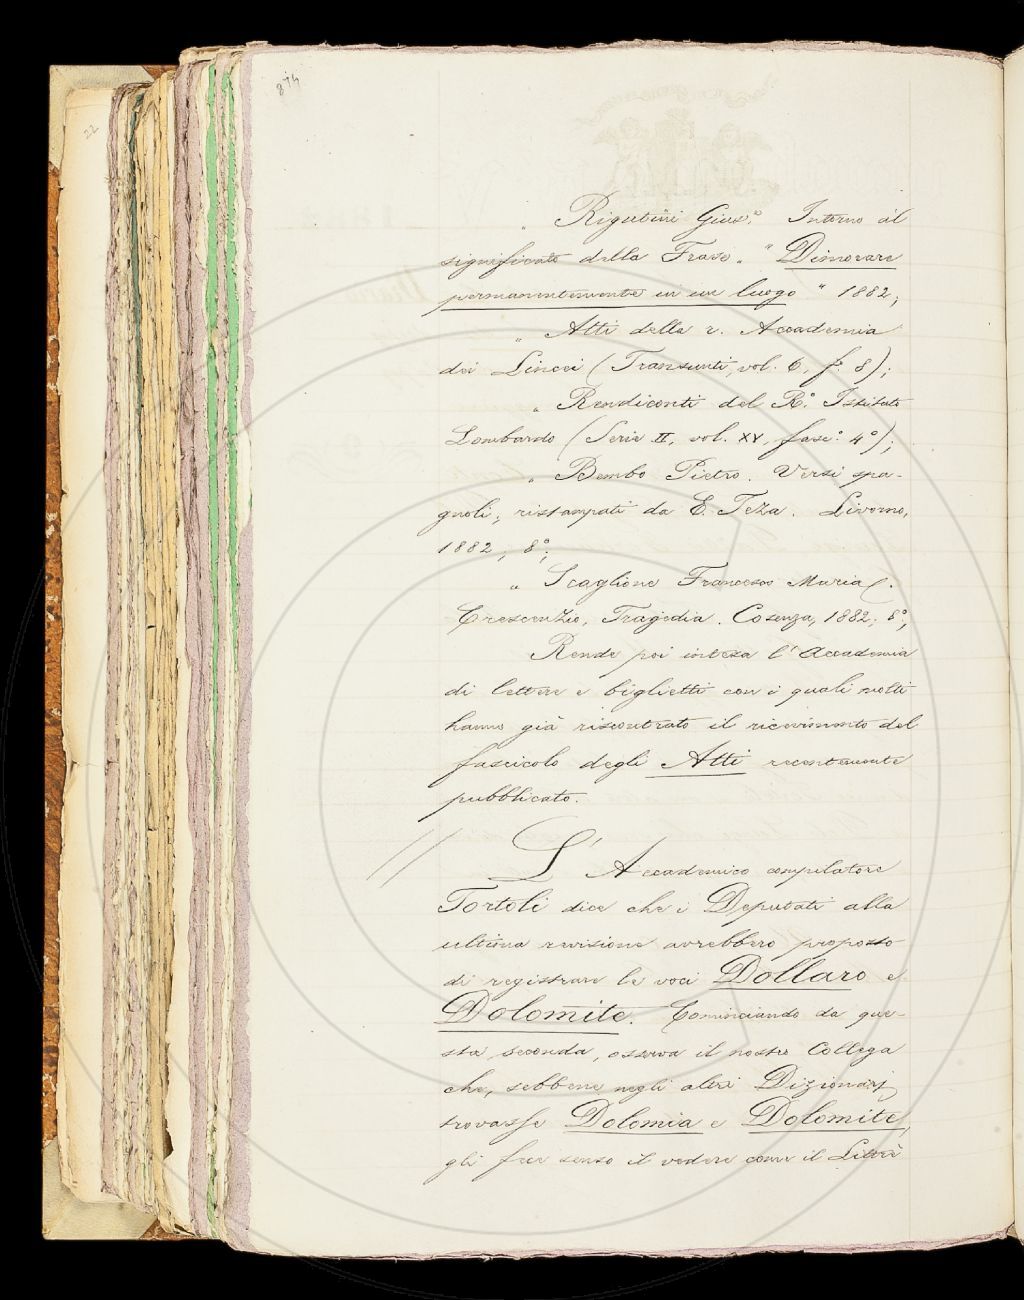 874
22
" Rigutini Gius.e Intorno al
significato della Frase, " Dimorare
permanentemente in un luogo " 1882;
" Atti della r. Accademia
dei Lincei (Transunti, vol. 6, f. 8);
" Rendiconti del R.o Istituto
Lombardo (Serie II, vol. XV, fasc.o 4o);
" Bembo Pietro. Versi spa-
gnoli, ristampati da E. Teza. Livorno,
1882, 8o;
" Scaglione Francesco Maria.
Crescenzio, Tragedia. Cosenza, 1882, 8o;
Rende poi intesa l'Accademia
di lettere e biglietti con i quali molti
hanno già riscontrato il ricevimento del
fascicolo degli Atti recentemente
pubblicato.
L'Accademico compilatore
Tortoli dice che i Deputati alla
ultima revisione avrebbero proposto
di registrare le voci Dollaro e
Dolomite. Cominciando da que-
sta seconda, osserva il nostro Collega
che, sebbene negli altri Dizionarj
trovasse Dolomia e Dolomite,
gli fece senso il vedere come il Littré